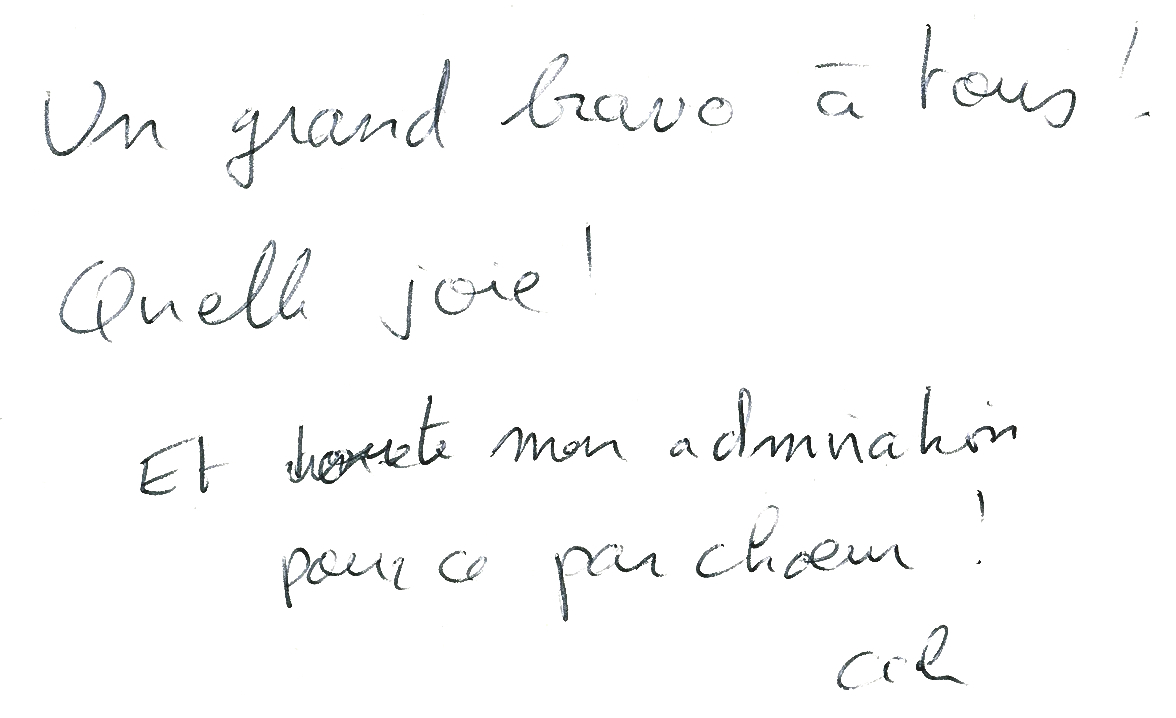 Un grand bravo à tous !
Quelle joie !
Et toute mon admiration
pour ce par choeur !